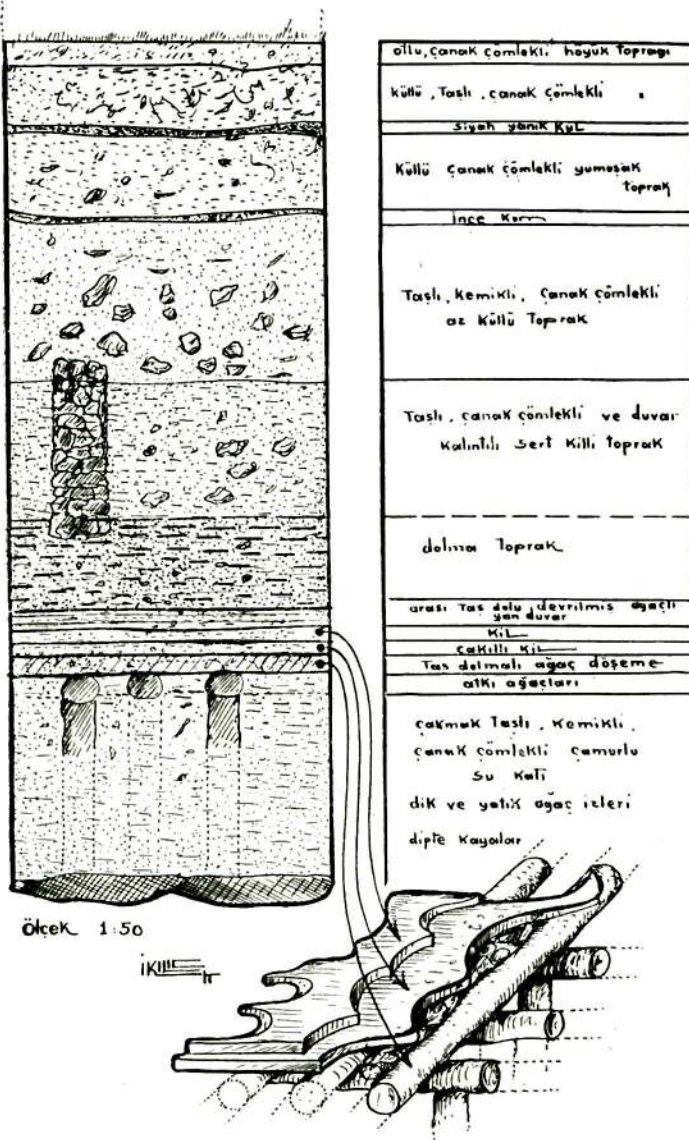 otlu, çanak çömlekli höyük toprağı
küllü, Taşlı, çanak çömlekli "
siyah yanık kül
küllü çanak çömlekli yumuşak
toprak
ince kum
Taşlı, kemikli, çanak çömlekli
az küllü Toprak
Taşlı, çanak çömlekli ve duvar
kalıntılı sert killi toprak
dolma toprak
arası Taş dolu, devrilmiş ağaçlı
yan duvar
kil
çakıllı kil
Taş dolmalı ağaç döşeme
atkı ağaçları
çakmak Taşlı, kemikli,
çanak çömlekli çamurlu
su katı
dik ve yatık ağaç izleri
dipte kayalar
ölçek 1:50